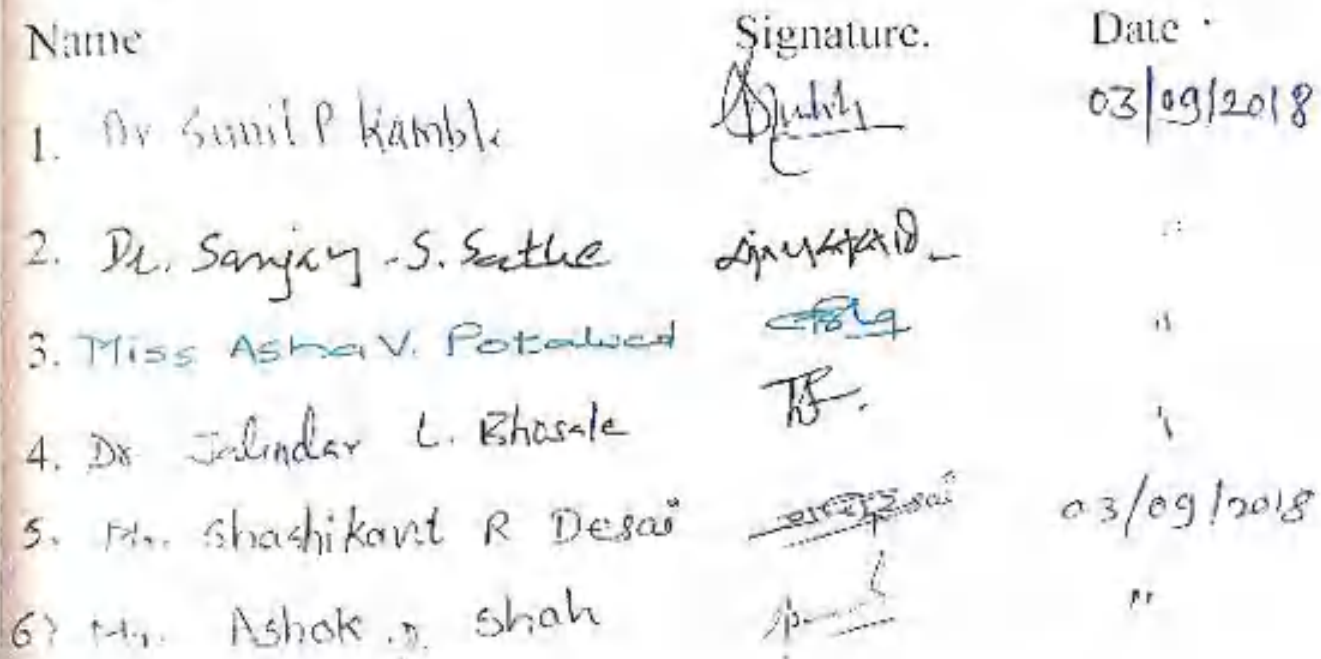 Name Signature. Date
1. Dr Sunil P Kamble 03/09/2018
2. Dr. Sanjay S. Sathe "
3. Miss Asha V. Potalwad "
4. Dr Jalindar L. Bhosale "
5. Mr. Shashikant R Desai 03/09/2018
6) Mr. Ashok D. Shah "